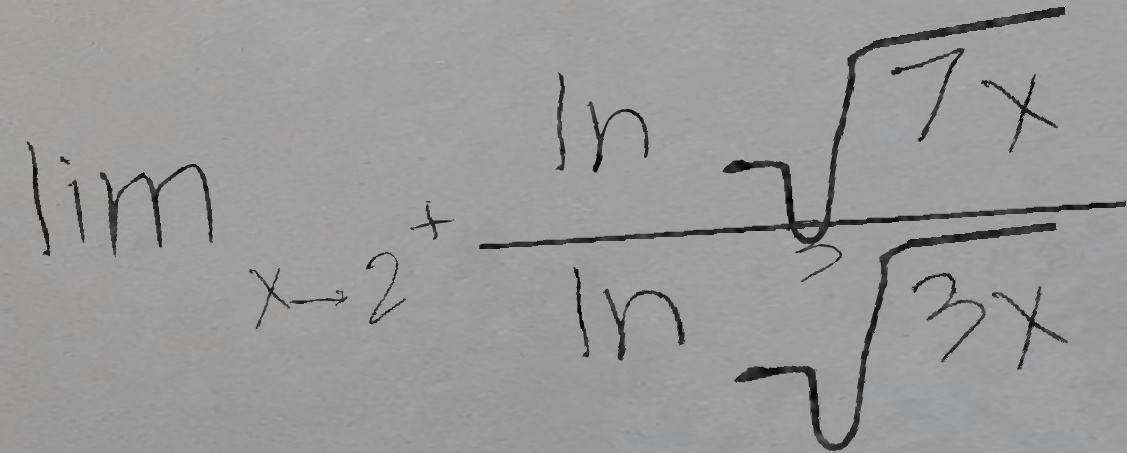 \lim_{x \to 2^+} \frac{\ln \sqrt{7x}}{\ln \sqrt{3x}}